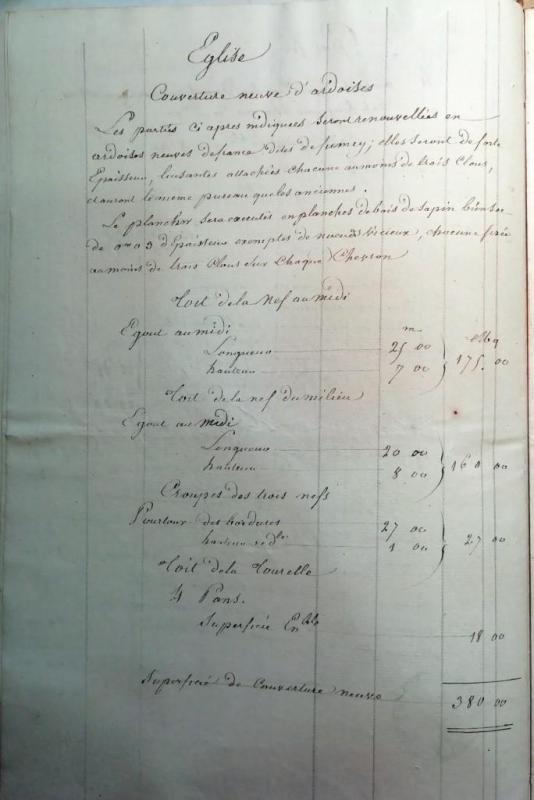 Eglise
Couverture neuve d'ardoises
Les parties ci apres indiquées seront renouvellées en
ardoises neuves de france dites de fumay; elles seront de forte
Epaisseur, luisantes attachées chacune au moins de trois Clous,
et auront le même pureau que les anciennes.
Le plancher sera executé en planches de bois de sapin bien sec
de 0m 03 d'Epaisseur exemptes de nœuds vicieux, chacune fixée
au moins de trois Clous sur Chaque Chevron
Toit de la nef au midi
Egout au midi m Mq
Longueur 25 00
hauteur 7 00 175. 00
Toit de la nef du milieu
Egout au midi
Longueur 20 00
hauteur 8 00 160 00
Croupes des trois nefs
Pourtour des bordures 27 00
hauteur réd.te 1 00 27 00
Toit de la Tourelle
4 Pans.
Superficie Enble 18 00
Superficie de Couverture neuve 380 00